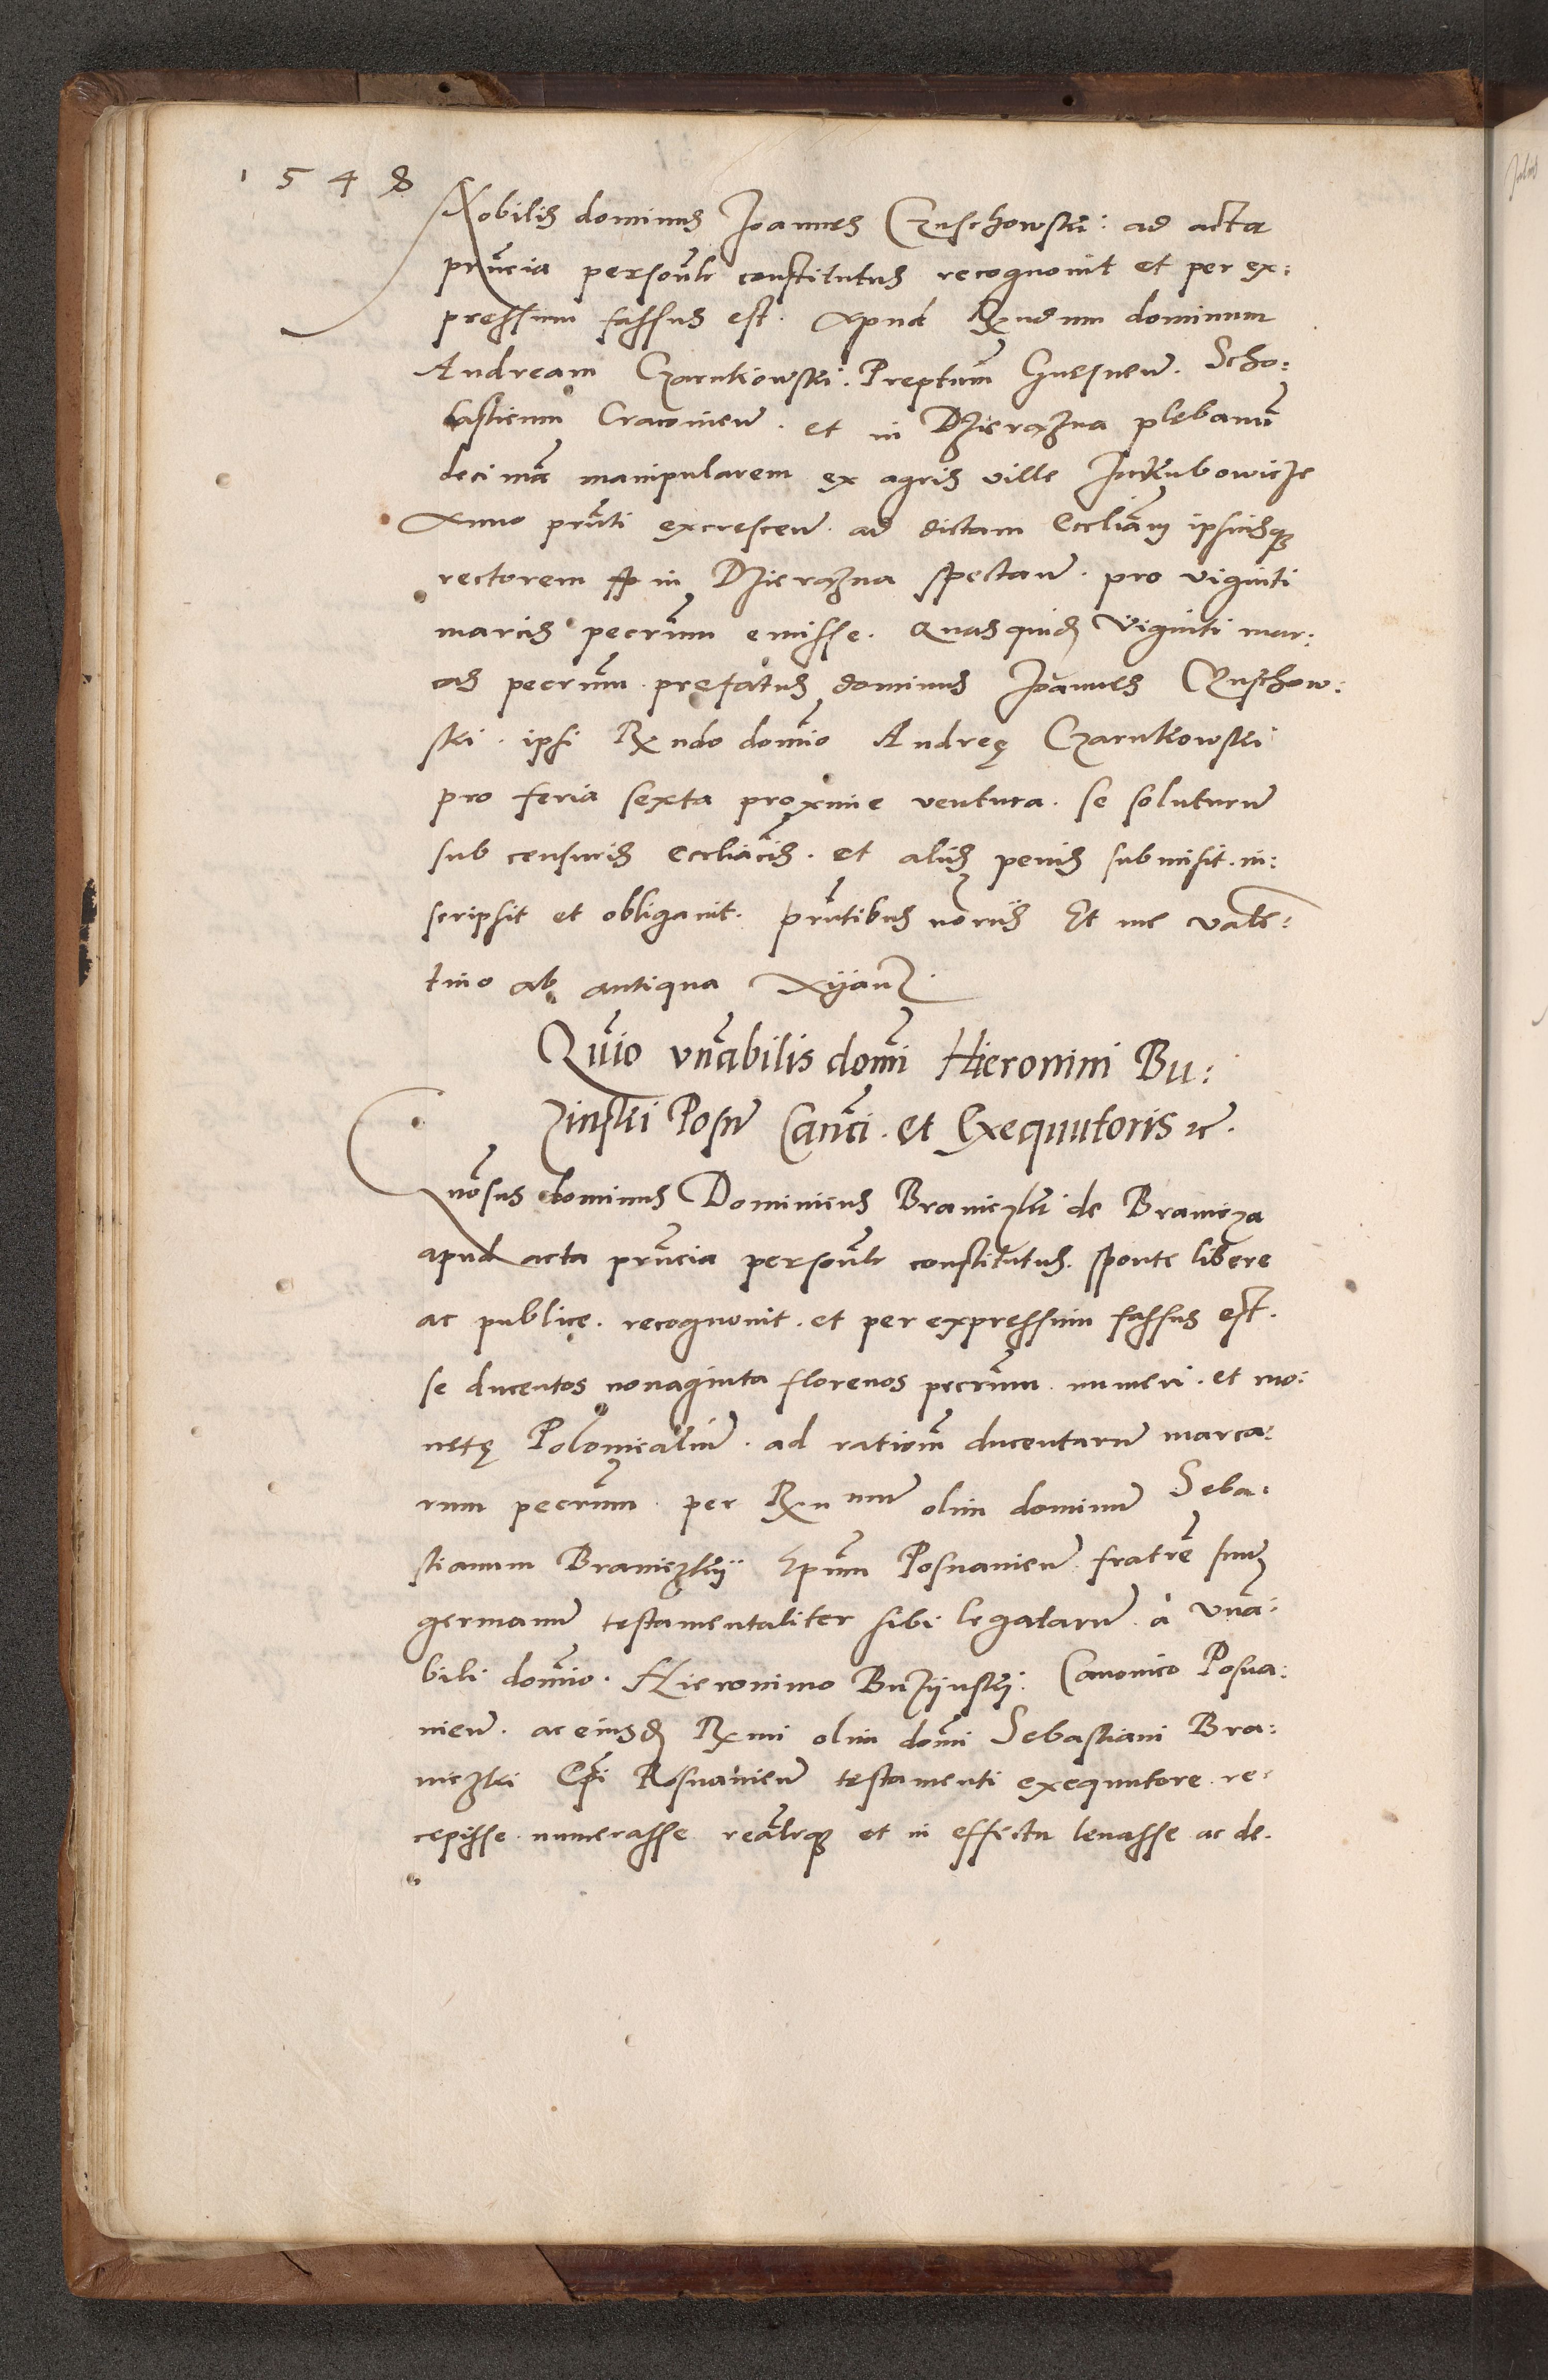 1548
Nobilis dominus Joannes Czuschowski: ad acta
pn̄cia personlr constitutus recognouit et per ex:
pressum fassus est. Apud Rx̄ndum dominum
Andream Czarnkowski. Preptum Gnesnen̄. Scho:
lasticum Cracouien̄. et in Dzieraznа plebanū
decimā manipularem ex agris ville Jakubowicze
Anno pn̄ti excrescen̄. ad dictam Eccliam ipsiusq̨
rectorem in Dzierazna spectan̄. pro viginti
marcis pecrum emisse. Quasquid̄ viginti mar:
cas pecrum prefatus dominus Joannes Czuschow:
ski. ipsi Rx̄ndo domio Andreę Czarnkowski
pro feria sexta proxime ventura. se soluturū
sub censuris eccliacis. et aliis penis submisit. in:
scripsit et obligauit. pn̄tibus noriis Et me Vale:
tino ab antiqua Xyanz.
Qūio vn̄abilis domi Hieronimi Bu:
zinski Posn̄ Canci. et Exequutoris etc.
Gnōsus dominus Dominicus Braniczki de Branicza
apud acta pn̄cia personlr constitutus. sponte libere
ac publicę. recognouit. et per expressum fassus est.
se ducentos nonaginta florenos pecrum numeri. et mo:
netę Polonicalium. ad rationm ducentarū marca:
rum pecrum. per Rx̄n mum olim dominū Seba:
stianum Braniczkij Epum Posnanien̄ fratrē suū
germanū testamentaliter sibi legatarū. à vn̄a:
bili domio. Hieronimo Buzijnskj. Canonico Posna:
nien̄. ac eiusd̄ Rx̄mi olim domi Sebastiani Bra:
niczki Epi Posnanien̄ testamenti exequutore. re:
cepisse. numerasse realrq̨ et in effectu leuasse ac de.